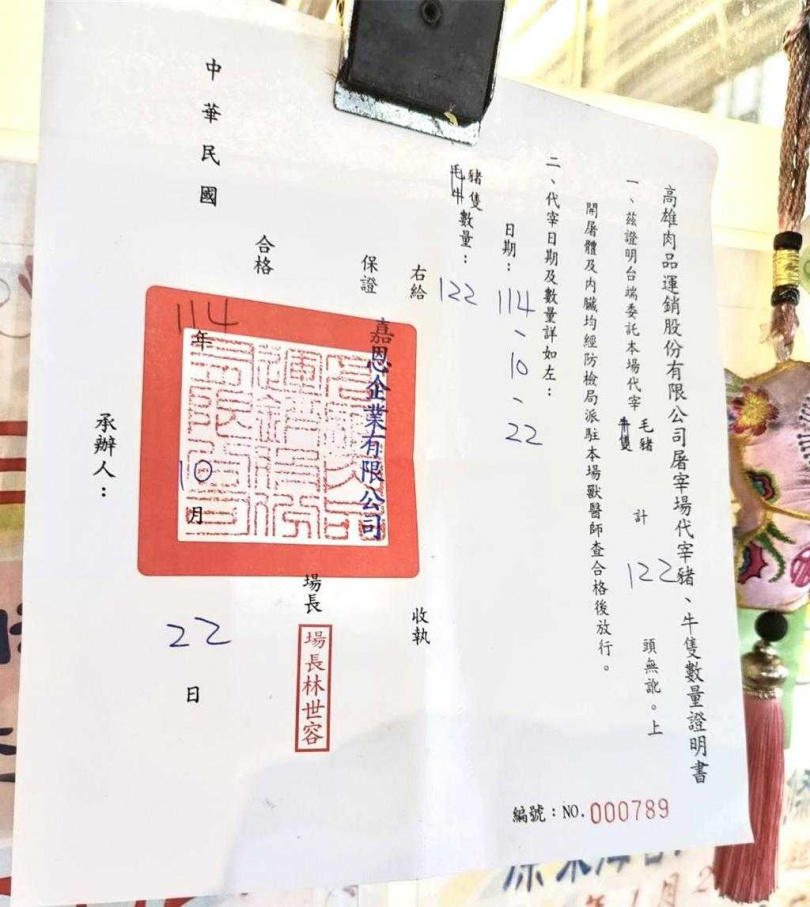 高雄肉品運銷股份有限公司屠宰場代宰豬、牛隻數量證明書
一、茲證明台端委託本場代宰毛豬牛隻計122頭無訛。上
開屠體及內臟均經防檢局派駐本場獸醫師查合格後放行。
二、代宰日期及數量詳如左：
日期：114、10、22
豬隻毛牛數量：122
右給
收執
保證
嘉恩企業有限公司
合格
場長
場長林世容
中華民國
114年10月22日
承辦人：
編號：NO.000789